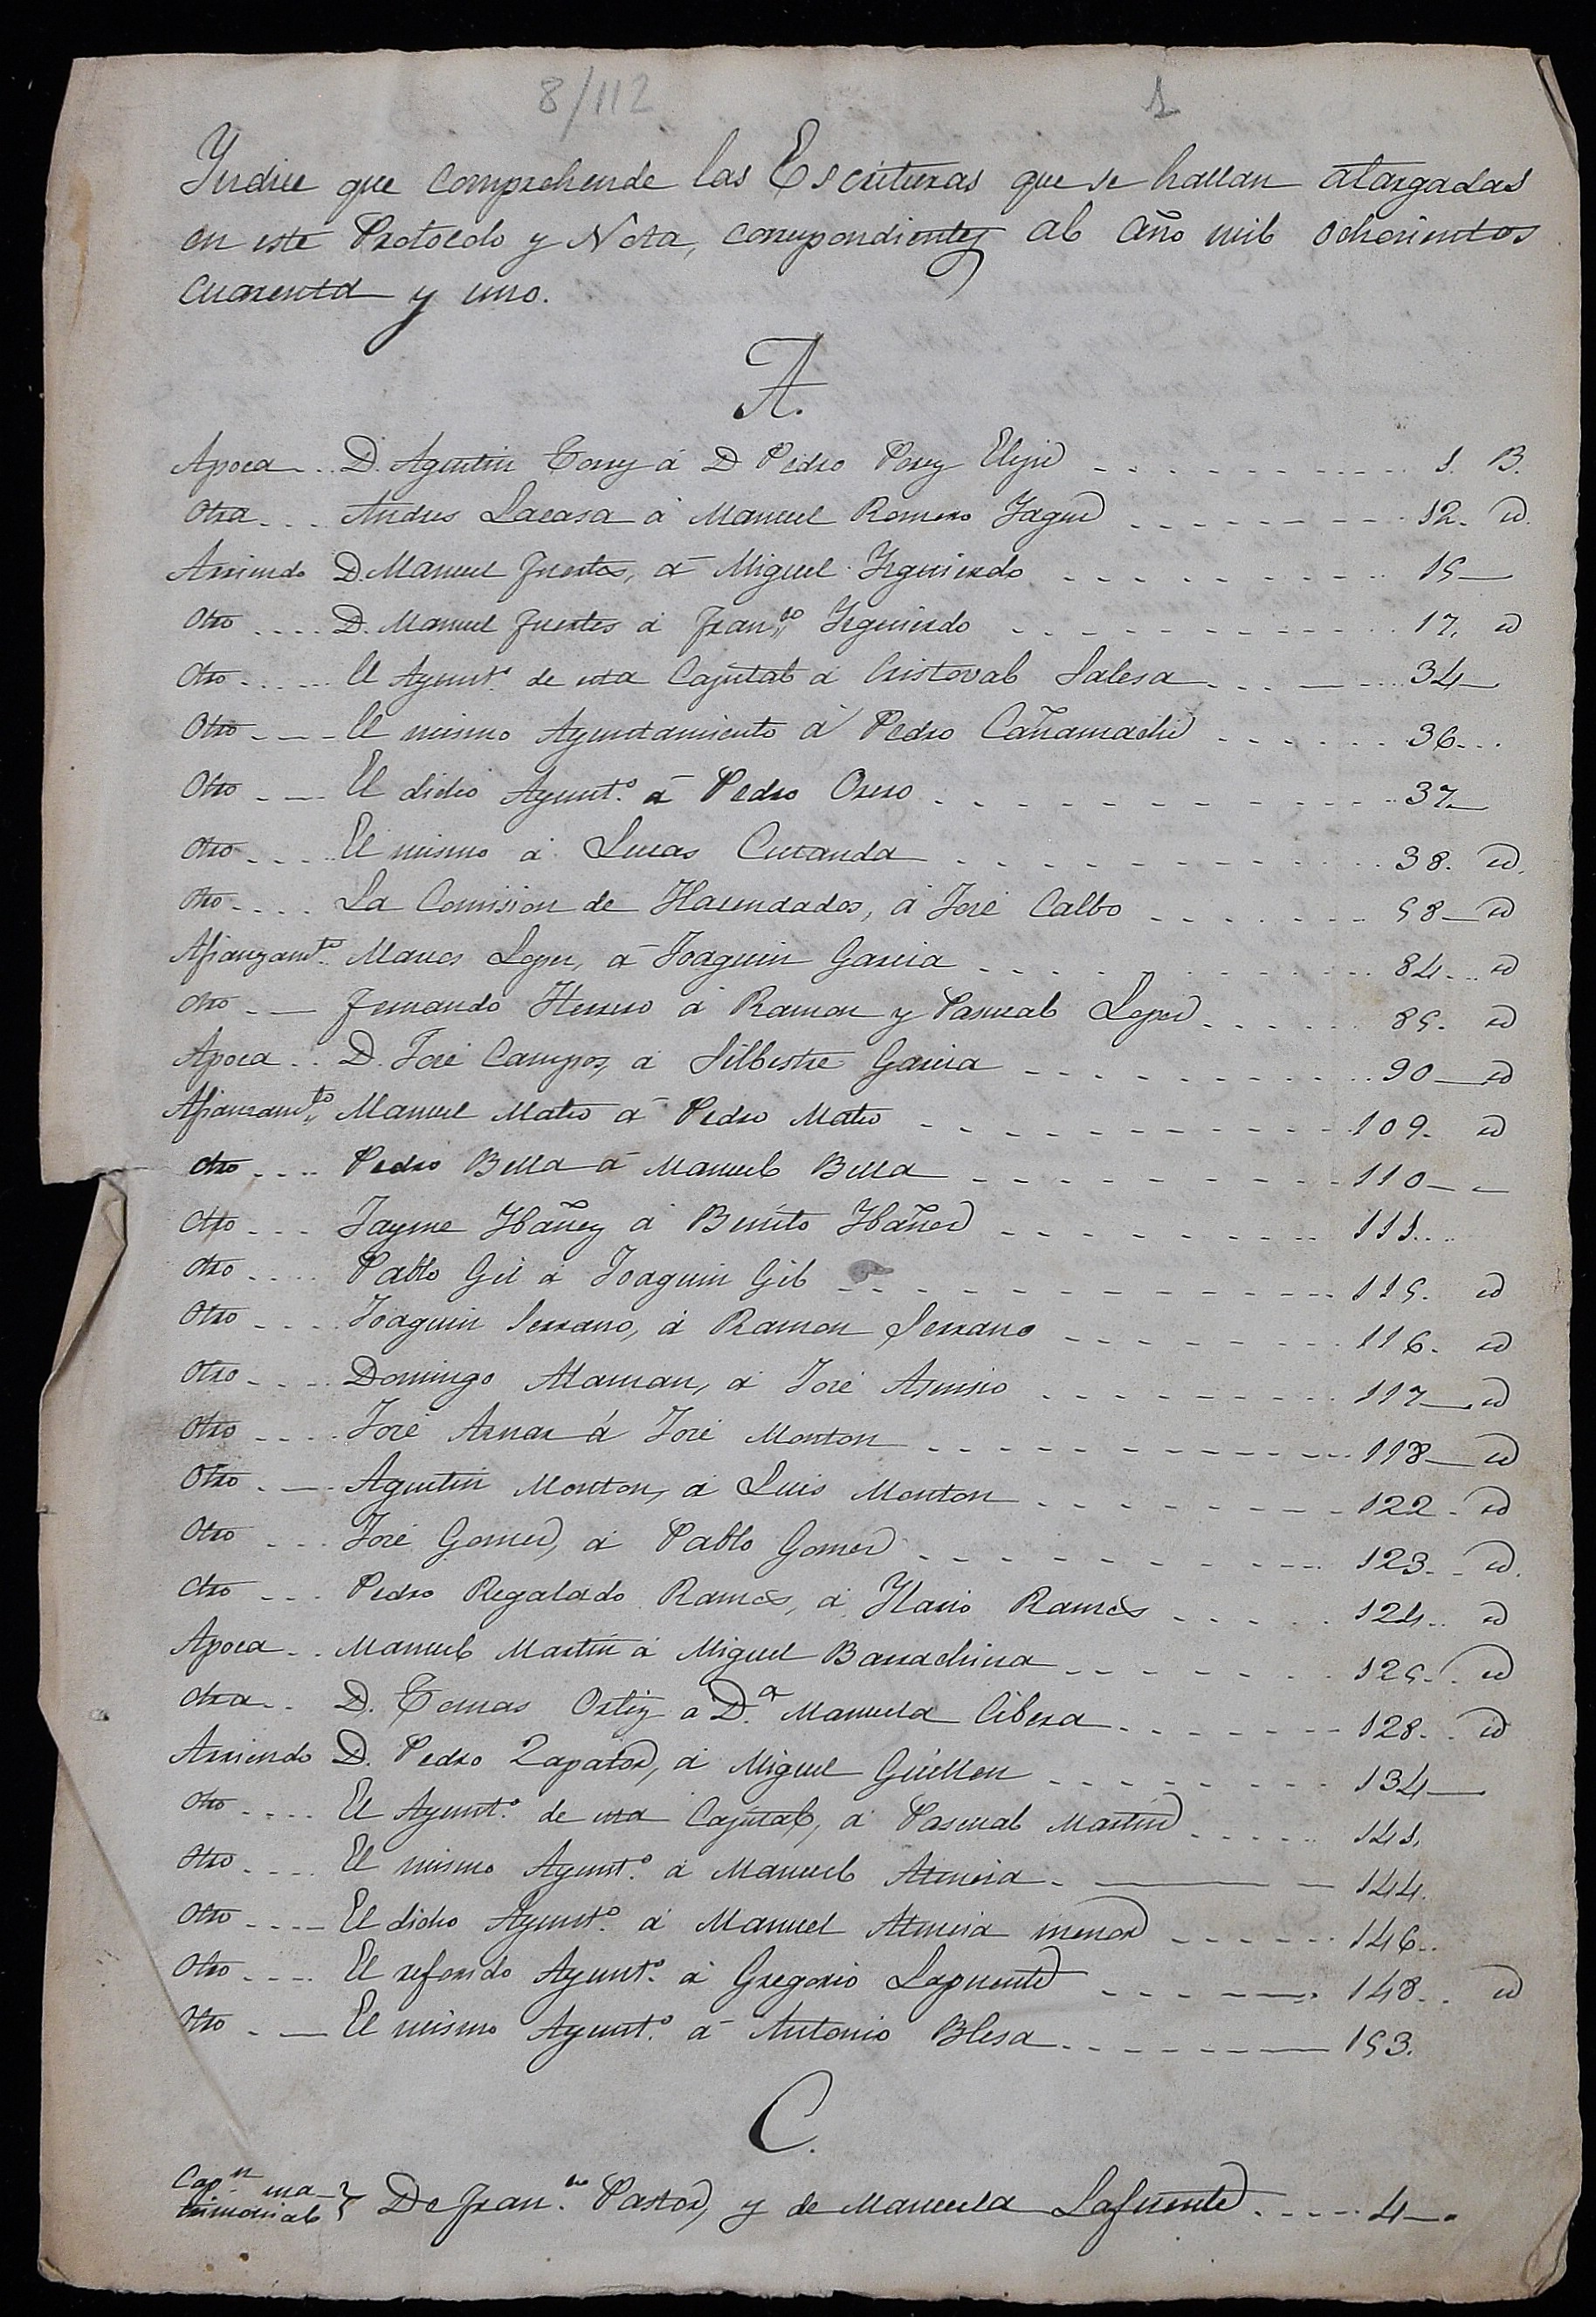 8/112 1
Yndice que comprehende las Escrituras que se hallan alargadas
en este Protocolo y Nota, correspondientes al año mil ochocientos
cuarenta y uno.
A.
Apoca .. D. Agustin Torrez á D Pedro Perez 1. B.
Otra ... Andres Lacasa á Manuel Romero Yague 12. id.
Arriendo D. Manuel Fuertes, á Miguel Yzquierdo 15
Otro .... D. Manuel Fuertes á Fran.co Yzquierdo 17. id
Otro .... El Ayunt.o de esta Capital á Cristoval Salesa 34
Otro .... El mismo Ayuntamiento á Pedro Cañamache 36
Otro .... El dicho Ayunt.o á Pedro Orero 37
Otro .... El mismo á Lucas Cutanda 38. id.
Otro .... La Comision de Hacendados, á José Calbo 58 id
Afianzam.to Marcos Lopez, á Joaquin Garcia 84 id
Otro .... Fernando Herrero á Ramon y Pascual Lopez 85. id
Apoca .. D. José Campos, á Silbestre Garcia 90 id
Afianzam.to Manuel Mateo á Pedro Mateo 109. id
Otro .... Pedro Bella á Manuel Bella 110
Otro ... Jayme Ybañez á Benito Ybañez 111
Otro .... Pablo Gil á Joaquin Gil 115. id
Otro .... Joaquin Serrano, á Ramon Serrano 116. id
Otro .... Domingo Alaman, á José Asensio 117 id
Otro .... José Aznar á José Monton 118 id
Otro .... Agustin Monton, á Luis Monton 122. id
Otro ... José Gomez, á Pablo Gomez 123. id.
Otro ... Pedro Regalado Ramos, á Ylario Ramos 124. id
Apoca .. Manuel Martin á Miguel Barrachina 125. id
Otra .. D. Tomas Ortiz a D.a Manuela Cibera 128. id
Arriendo D. Pedro Zapater, á Miguel Guillen 134
Otro .... El Ayunt.o de esta Capital, á Pascual Martin 141.
Otro .... El mismo Ayunt.o á Manuel Atencia 144.
Otro .... El dicho Ayunt.o á Manuel Atencia menor 146
Otro .... El referido Ayunt.o á Gregorio Lapuente 148. id
Otro .... El mismo Ayunt.o á Antonio Blesa 153.
C.
Cap.n ma-
trimonial } De Fran.co Pastor, y de Manuela Lafuente 4